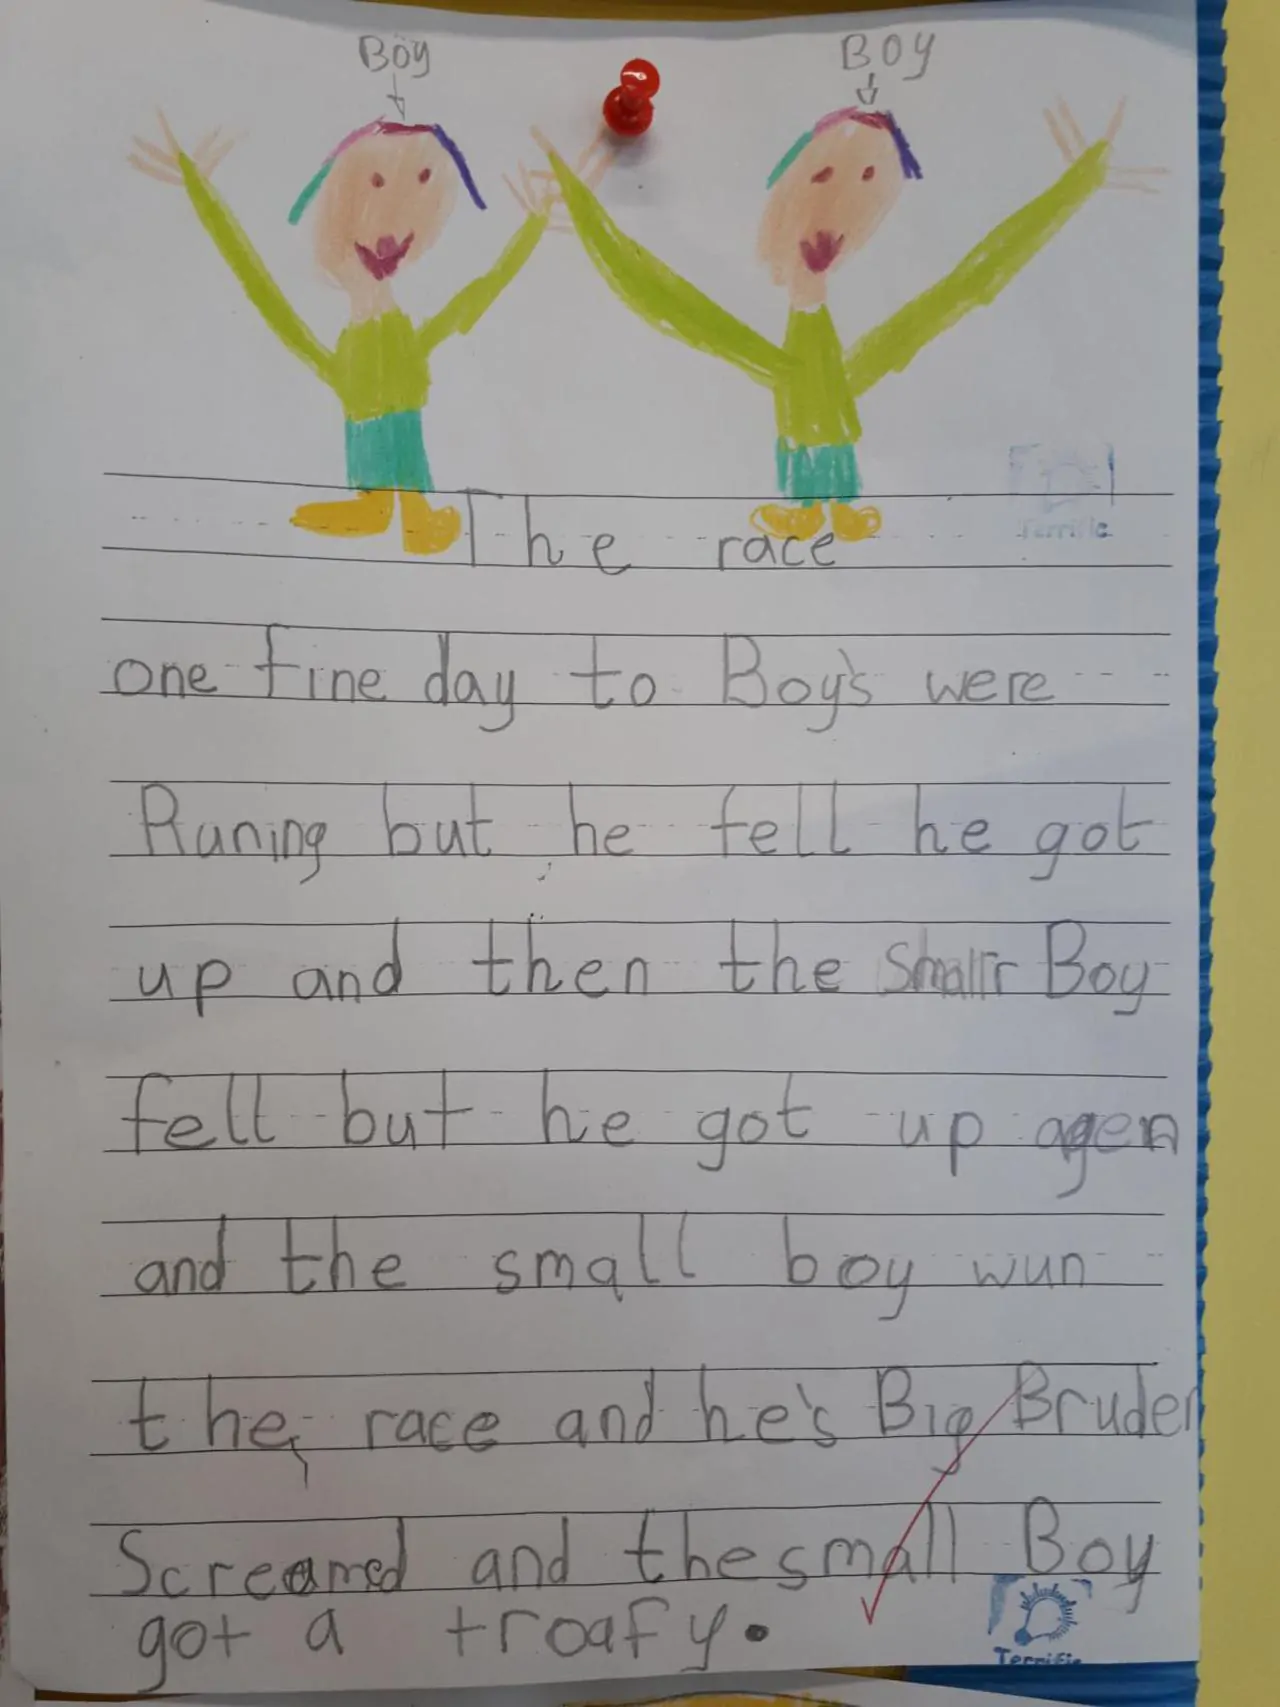 Boy
BOY
Terrific
The race
one fine day to Boy's were
Runing but he fell he got
up and then the Smallr Boy
fell but he got up agen
and the small boy wun
the race and he's Big Bruder
Screamed and the small Boy
got a troafy.
Terrific